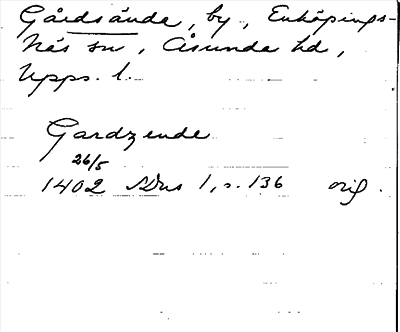 Gårdsände, by, Enköpings-
Näs sn, Åsunda hd,
Upps. l.
Gardzende
26/5
1402 SDns 1, s. 136 orig.